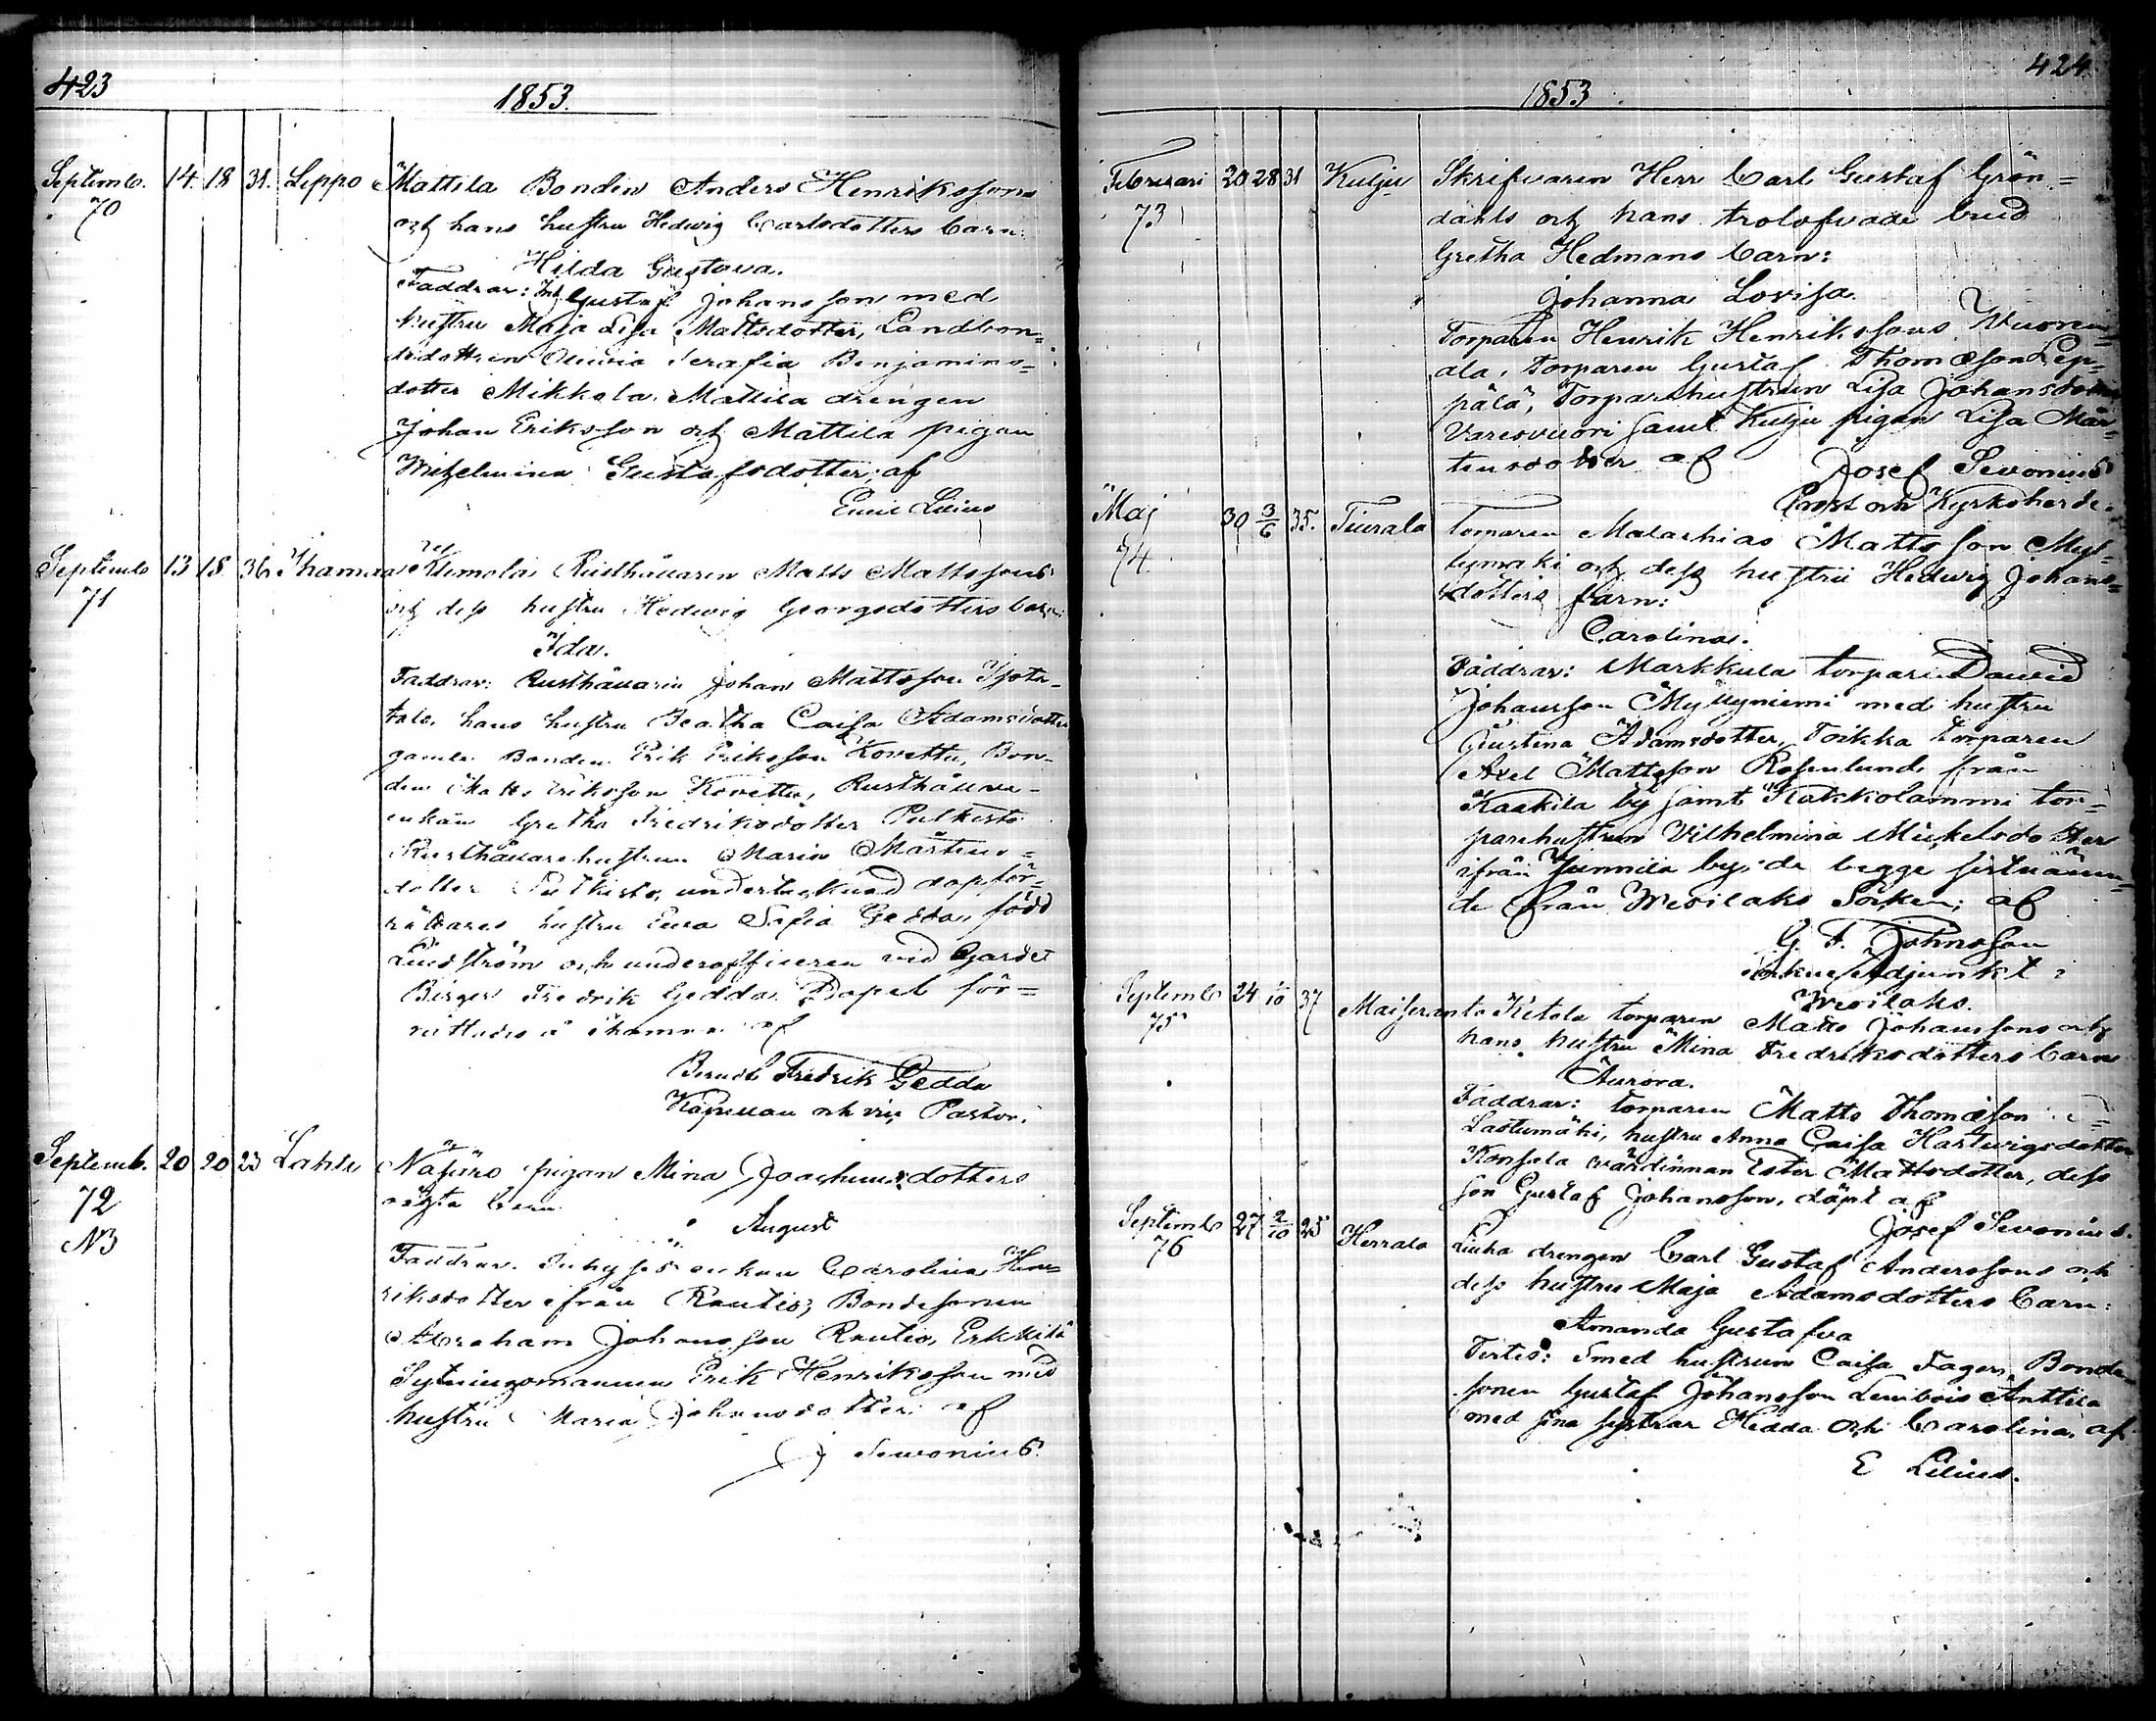 423
1853.
Septemb. 14. 18 31. Leppo Mattila Bonden Anders Henrikssons
70 och hans hustru Hedwig Carlsdotters barn:
Hilda Gustava.
Faddrar: Gustaf Johansson med
hustru Maja Lisa Mattsdotter, Landbon=
dedottren Serafia Benjamins=
dotter Mikkola. Mattila drengen
Johan Eriksson och Mattila pigan
Wilhelmina Gustafsdotter; af
Emil Lilius
Septemb 13 18 36 Klemola Rusthållaren Matts Mattssons
71 och dess hustru Hedwig Georgsdotters barn
Ida.
Faddrar: Rusthållaren Johan Mattsson
talo, hans hustru Beatha Caisa Adamsdotter
gamle Bonden Erik Eriksson Kovettu, Bon-
den Matts Eriksson Kovettu, Rusthållare-
enkan Gretha Fredriksdotter Pulkisto
Rusthållarehustrun Maria Mårtens=
dotter undertecknad dopför=
rättares hustru Sofia Gedda, född
Lindström och underofficeren vid Gardet
Birger Fredrik Gedda. Dopet för=
rättades af
Berndt Fredrik Gedda
Kapellan och vice Pastor.
Septemb. 20 20 23 Lahti pigan Mina Joachimsdotters
72 oägta barn
N3 August
Faddrar. enkan Carolina Hen=
riksdotter ifrån Rautio; Bondesonen
Abraham Johansson Rautio, Erkkilä
Sytningsmannen Erik Henriksson med
hustru Maria Johansdotter af
J Sevonius.
424
1853.
Februari 20 28 31 Kulju Skrifvaren Herr Carl Gustaf Grön=
73 dahls och hans trolofvade brud
Gretha Hedmans barn:
Johanna Lovisa.
Torparen Henrik Henrikssons Wuoren=
ala, Torparen Gustaf Thomasson Lep=
pälä, Torparehustrun Lisa Johansdotter
Varesvuori samt Kulju pigan Lisa Mår=
tensdotter af Josef Sevonius
Prost och Kyrkoherde.
Maj 30 3/6 35. Tiurala Torparen Malachias Mattsson Myl=
74 lymäki och dess hustru Hedwig Johans=
dotters barn:
Carolina.
Faddrar: Markkula torparen David
Johansson Myllyniemi med hustru
Justina Adamsdotter, Toikka torparen
Axel Mattsson Rosenlund från
Kaakila by samt Kakkolammi tor=
parehustrun Vilhelmina Mickelsdotter
ifrån by; de begge sistnämn=
de från Wesilaks Socken; af
G. F. Johnsson
Adjunkt i
Wesilaks.
Septemb 24 1/10 37 Maiseranto Ketola torparen Matts Johanssons och
75 hans hustru Mina Fredriksdotters barn
Aurora.
Faddrar: torparen Matts Thomasson
Lastumäki, hustru Anna Caisa Hartwigsdotter
Konsela wärdinnan Ester Mattsdotter, dess
son Gustaf Johansson, döpt af
Josef Sevonius.
Septemb 27 2/10 25 Herrala Liuha drengen Carl Gustaf Anderssons och
76 dess hustru Maja Adamsdotters barn:
Amanda Gustafva
Testes: Smed hustrun Caisa Fager, Bonde=
sonen Gustaf Johansson Lembois Anttila
med sina systrar Hedda och Carolina, af
E Lilius.